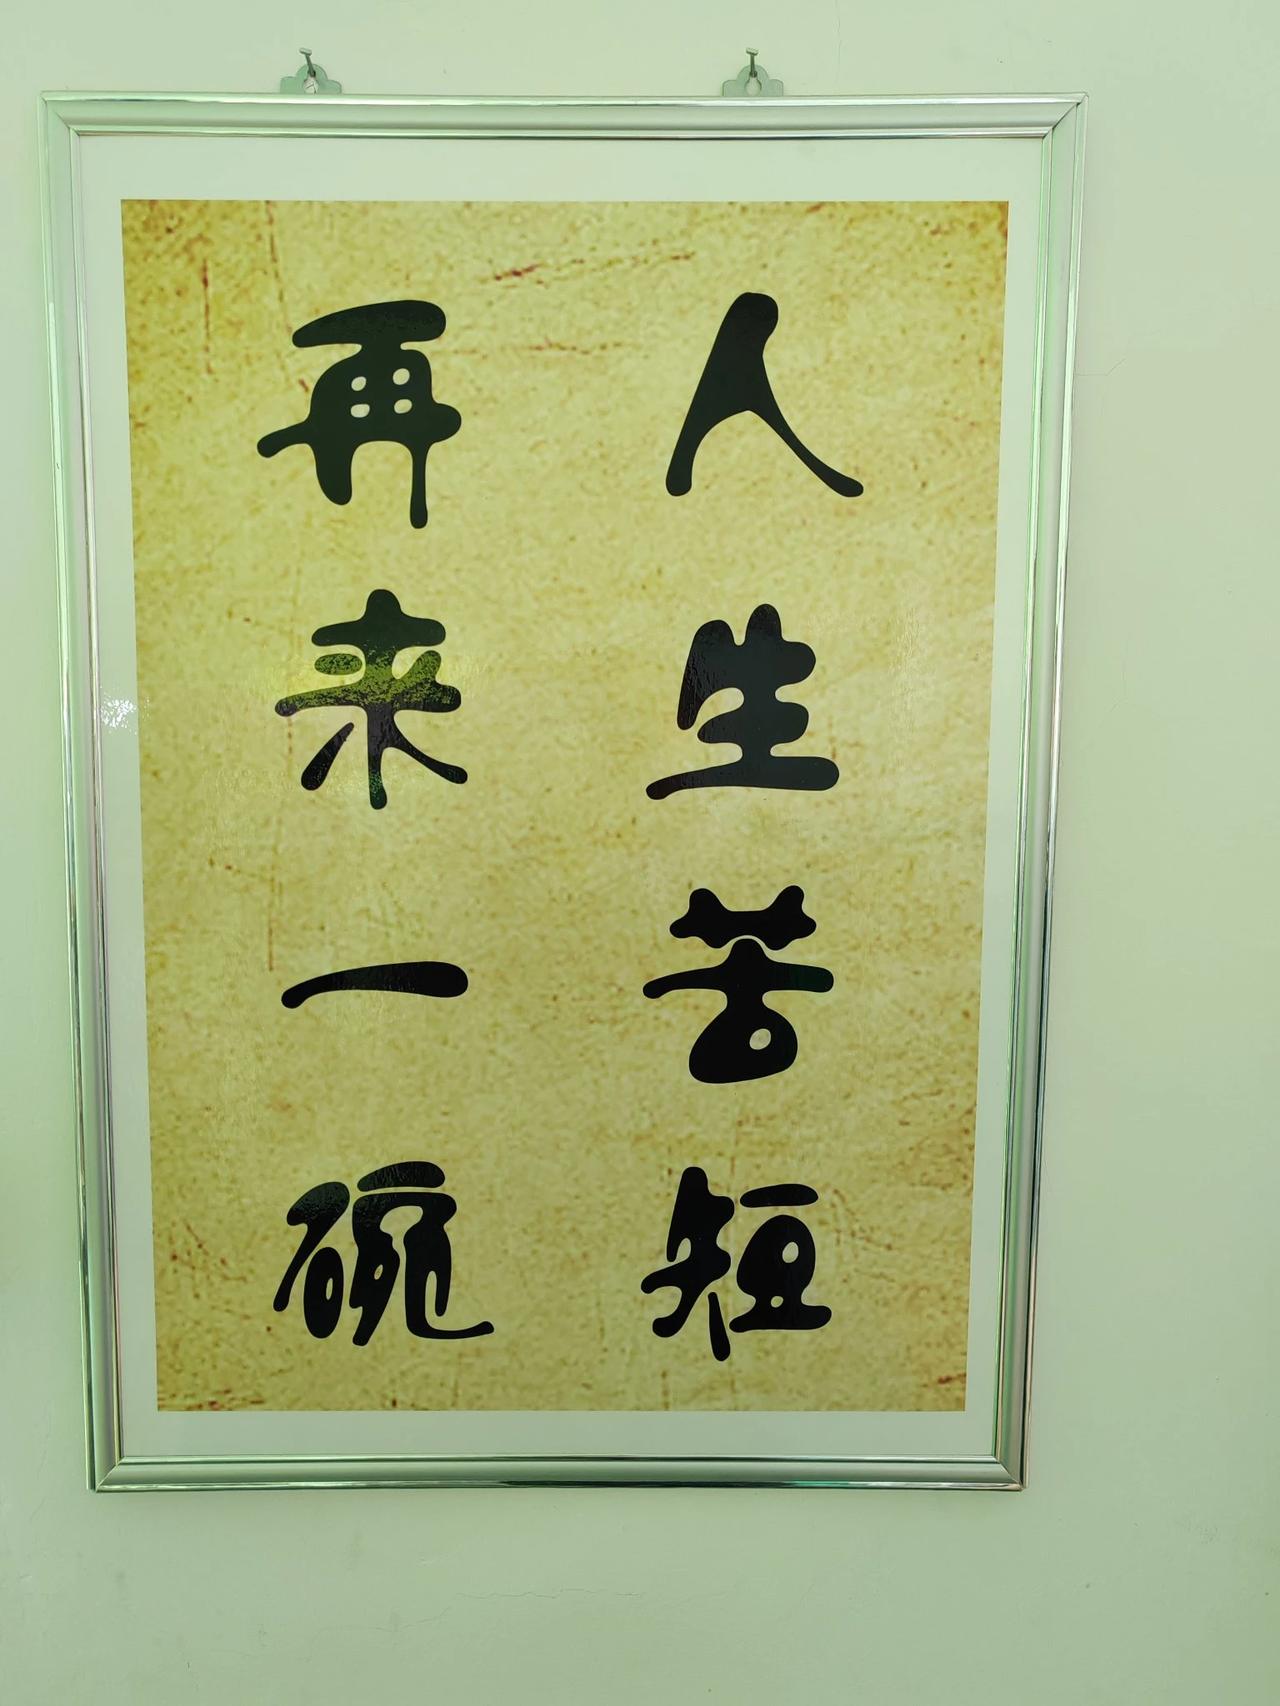 人生苦短
再来一碗